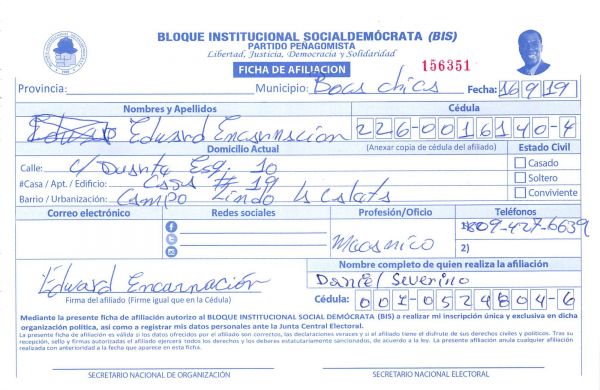 BLOQUE INSTITUCIONAL SOCIALDEMÓCRATA (BIS)
PARTIDO PEÑAGOMISTA
Libertad, Justicia, Democracia y Solidaridad
FICHA DE AFILIACION
156351
Provincia: Municipio: Boca chica Fecha: 16/9/19
Nombres y Apellidos Cédula
Eduard Encarnacion 226-0016140-4
Domicilio Actual (Anexar copia de cédula del afiliado) Estado Civil
Calle: c/ Duarte Esq. 10 Casado
#Casa / Apt. / Edificio: Casa # 19 Soltero
Barrio / Urbanización: Campo Lindo la Conviviente
Correo electrónico Redes sociales Profesión/Oficio Teléfonos
1) 809-427-6639
Mecanico 2)
Nombre completo de quien realiza la afiliación
Eduard Encarnación Daniel Severino
Firma del afiliado (Firme igual que en la Cédula) Cédula: 001-0529804-6
Mediante la presente ficha de afiliación autorizo al BLOQUE INSTITUCIONAL SOCIAL DEMÓCRATA (BIS) a realizar mi inscripción única y exclusiva en dicha
organización política, así como a registrar mis datos personales ante la Junta Central Electoral.
La presente ficha de afiliación es válida si los datos ofrecidos por el afiliado son correctos, las declaraciones veraces y si al afiliado tiene el disfrute de sus derechos civiles y políticos. Tras su
recepción, sello y firmas autorizadas el afiliado ejercerá todos los derechos y los deberes estatutariamente sancionados, de acuerdo a la ley. La presente afiliación anula cualquier afiliación
realizada con anterioridad a la fecha que aparece en esta ficha.
SECRETARIO NACIONAL DE ORGANIZACIÓN SECRETARIO NACIONAL ELECTORAL